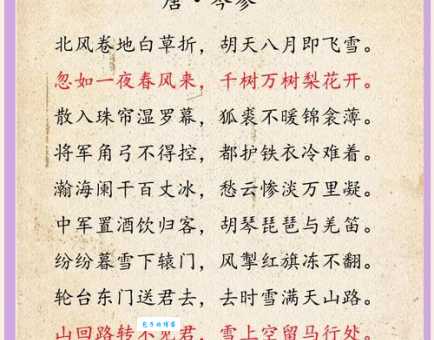 唐·岑参
北风卷地白草折，胡天八月即飞雪。
忽如一夜春风来，千树万树梨花开。
散入珠帘湿罗幕，狐裘不暖锦衾薄。
将军角弓不得控，都护铁衣冷难着。
瀚海阑干百丈冰，愁云惨淡万里凝。
中军置酒饮归客，胡琴琵琶与羌笛。
纷纷暮雪下辕门，风掣红旗冻不翻。
轮台东门送君去，去时雪满天山路。
山回路转不见君，雪上空留马行处。